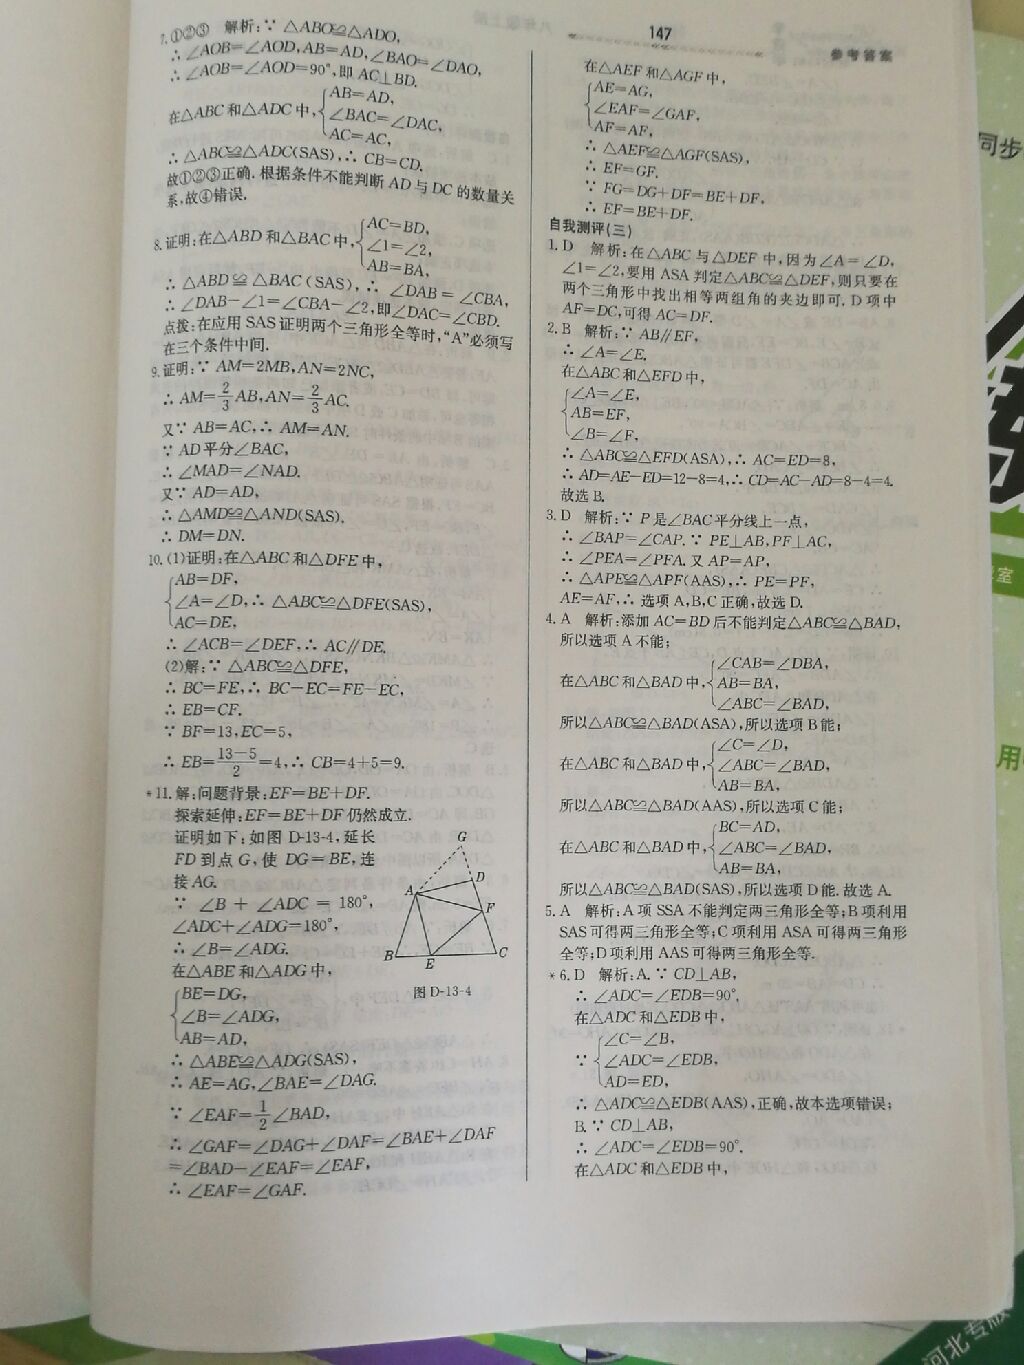 147
参考答案
7.①②③ 解析:∵ △ABO≌△ADO,
∴ ∠AOB=∠AOD,AB=AD,∠BAO=∠DAO,
∴ ∠AOB=∠AOD=90°,即 AC⊥BD.
在△ABC 和△ADC 中,
AB=AD,
∠BAC=∠DAC,
AC=AC,
∴ △ABC≌△ADC(SAS),∴ CB=CD.
故①②③正确.根据条件不能判断 AD 与 DC 的数量关
系,故④错误.
8.证明:在△ABD 和△BAC 中,
AC=BD,
∠1=∠2,
AB=BA,
∴ △ABD≌△BAC(SAS),∴ ∠DAB=∠CBA,
∴ ∠DAB-∠1=∠CBA-∠2,即∠DAC=∠CBD.
点拨:在应用 SAS 证明两个三角形全等时,“A”必须写
在三个条件中间.
9.证明:∵ AM=2MB,AN=2NC,
∴ AM=2/3 AB,AN=2/3 AC.
又∵ AB=AC,∴ AM=AN.
∵ AD 平分∠BAC,
∴ ∠MAD=∠NAD.
又∵ AD=AD,
∴ △AMD≌△AND(SAS).
∴ DM=DN.
10.(1)证明:在△ABC 和△DFE 中,
AB=DF,
∠A=∠D,∴ △ABC≌△DFE(SAS),
AC=DE,
∴ ∠ACB=∠DEF,∴ AC∥DE.
(2)解:∵ △ABC≌△DFE,
∴ BC=FE,∴ BC-EC=FE-EC,
∴ EB=CF.
∵ BF=13,EC=5,
∴ EB=(13-5)/2=4,∴ CB=4+5=9.
*11.解:问题背景:EF=BE+DF.
探索延伸:EF=BE+DF 仍然成立.
证明如下:如图 D-13-4,延长
FD 到点 G,使 DG=BE,连
接 AG.
∵ ∠B+∠ADC=180°,
∠ADC+∠ADG=180°,
∴ ∠B=∠ADG.
在△ABE 和△ADG 中,
BE=DG,
∠B=∠ADG,
AB=AD,
∴ △ABE≌△ADG(SAS),
∴ AE=AG,∠BAE=∠DAG.
∵ ∠EAF=1/2∠BAD,
∴ ∠GAF=∠DAG+∠DAF=∠BAE+∠DAF
=∠BAD-∠EAF=∠EAF,
∴ ∠EAF=∠GAF.
G
A
D
F
B
E
C
图 D-13-4
在△AEF 和△AGF 中,
AE=AG,
∠EAF=∠GAF,
AF=AF,
∴ △AEF≌△AGF(SAS),
∴ EF=GF.
∵ FG=DG+DF=BE+DF,
∴ EF=BE+DF.
自我测评(三)
1. D 解析:在△ABC 与△DEF 中,因为∠A=∠D,
∠1=∠2,要用 ASA 判定△ABC≌△DEF,则只要在
两个三角形中找出相等两组角的夹边即可,D 项中
AF=DC,可得 AC=DF.
2. B 解析:∵ AB∥EF,
∴ ∠A=∠E.
在△ABC 和△EFD 中,
∠A=∠E,
AB=EF,
∠B=∠F,
∴ △ABC≌△EFD(ASA),∴ AC=ED=8,
∴ AD=AE-ED=12-8=4,∴ CD=AC-AD=8-4=4.
故选 B.
3. D 解析:∵ P 是∠BAC 平分线上一点,
∴ ∠BAP=∠CAP.∵ PE⊥AB,PF⊥AC,
∴ ∠PEA=∠PFA.又 AP=AP,
∴ △APE≌△APF(AAS),∴ PE=PF,
AE=AF,∴ 选项 A,B,C 正确,故选 D.
4. A 解析:添加 AC=BD 后不能判定△ABC≌△BAD,
所以选项 A 不能;
在△ABC 和△BAD 中,
∠CAB=∠DBA,
AB=BA,
∠ABC=∠BAD,
所以△ABC≌△BAD(ASA),所以选项 B 能;
在△ABC 和△BAD 中,
∠C=∠D,
∠ABC=∠BAD,
AB=BA,
所以△ABC≌△BAD(AAS),所以选项 C 能;
在△ABC 和△BAD 中,
BC=AD,
∠ABC=∠BAD,
AB=BA,
所以△ABC≌△BAD(SAS),所以选项 D 能.故选 A.
5. A 解析:A 项 SSA 不能判定两三角形全等;B 项利用
SAS 可得两三角形全等;C 项利用 ASA 可得两三角形
全等;D 项利用 AAS 可得两三角形全等.
*6. D 解析:A.∵ CD⊥AB,
∴ ∠ADC=∠EDB=90°,
在△ADC 和△EDB 中,
∵
∠C=∠B,
∠ADC=∠EDB,
AD=ED,
∴ △ADC≌△EDB(AAS),正确,故本选项错误;
B.∵ CD⊥AB,
∴ ∠ADC=∠EDB=90°.
在△ADC 和△EDB 中,
同步
室
用
河北专版